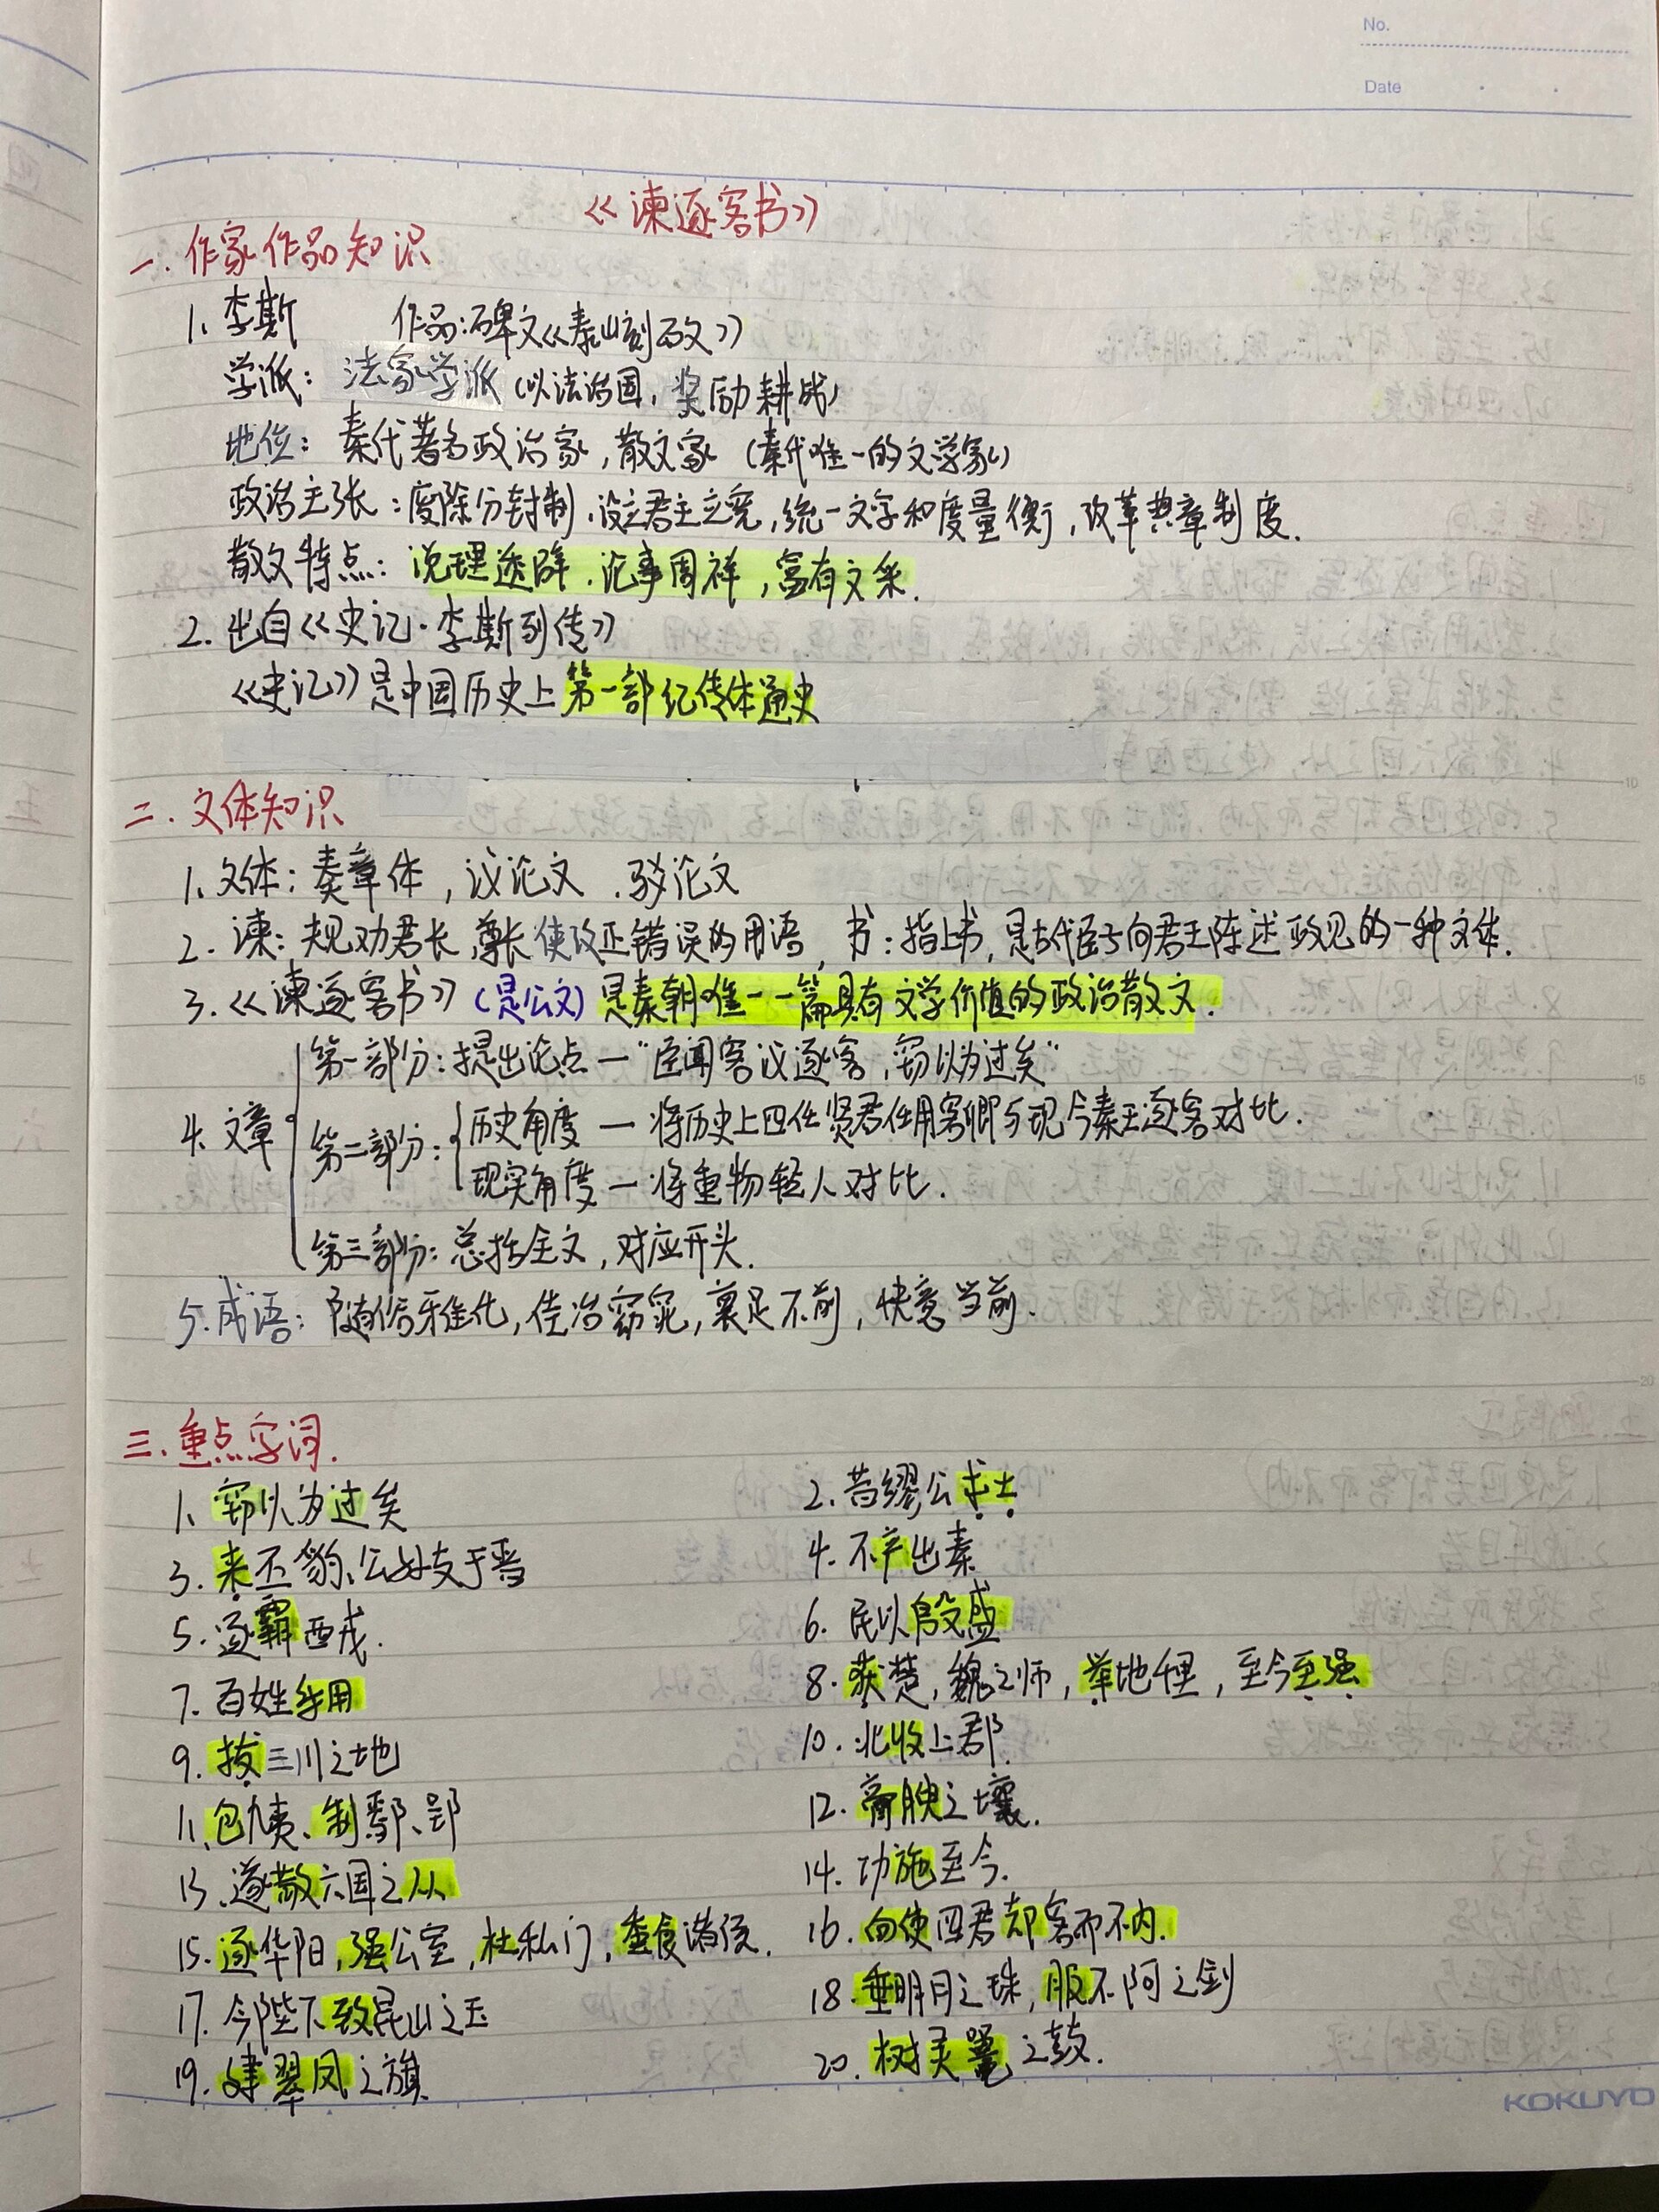 No.
Date
《谏逐客书》
一.作家作品知识
1、李斯 作品:碑文《泰山刻石文》
学派：法家学派(以法治国,奖励耕战)
地位：秦代著名政治家,散文家(秦代唯一的文学家)
政治主张:废除分封制.设立君主立宪,统一文字和度量衡,改革典章制度.
散文特点：说理透辟.论事周祥,富有文采.
2.出自《史记·李斯列传》
《史记》是中国历史上第一部纪传体通史
二.文体知识
1、文体:奏章体,议论文.驳论文
2.谏:规劝君长,尊长使改正错误的用语,书:指上书,是古代臣子向君王陈述政见的一种文体.
3.《谏逐客书》(是公文)是秦朝唯一一篇具有文学价值的政治散文.
第一部分:提出论点—"臣闻客议逐客,窃以为过矣"
4.文章 第二部分:历史角度—将历史上四任贤君任用客卿与现今秦王逐客对比.
现实角度—将重物轻人对比.
第三部分:总括全文,对应开头.
5.成语:随俗雅化,佳冶窈窕,裹足不前,快意当前.
三.重点字词.
1、窃以为过矣 2.昔缪公求士
3.来丕豹、公孙支于晋 4.不产出秦
5.遂霸西戎. 6.民以殷盛
7.百姓乐用 8.获楚,魏之师,举地千里,至今至强
9.拔三川之地 10.北收上郡.
11.包九夷、制鄢、郢 12.膏腴之壤.
13.遂散六国之从 14.功施至今.
15.逐华阳,强公室,杜私门,蚕食诸侯. 16.向使四君却客而不内.
17.今陛下致昆山之玉 18.垂明月之珠,服不阿之剑
19.建翠凤之旗. 20.树灵鼍之鼓.
KOKUYO